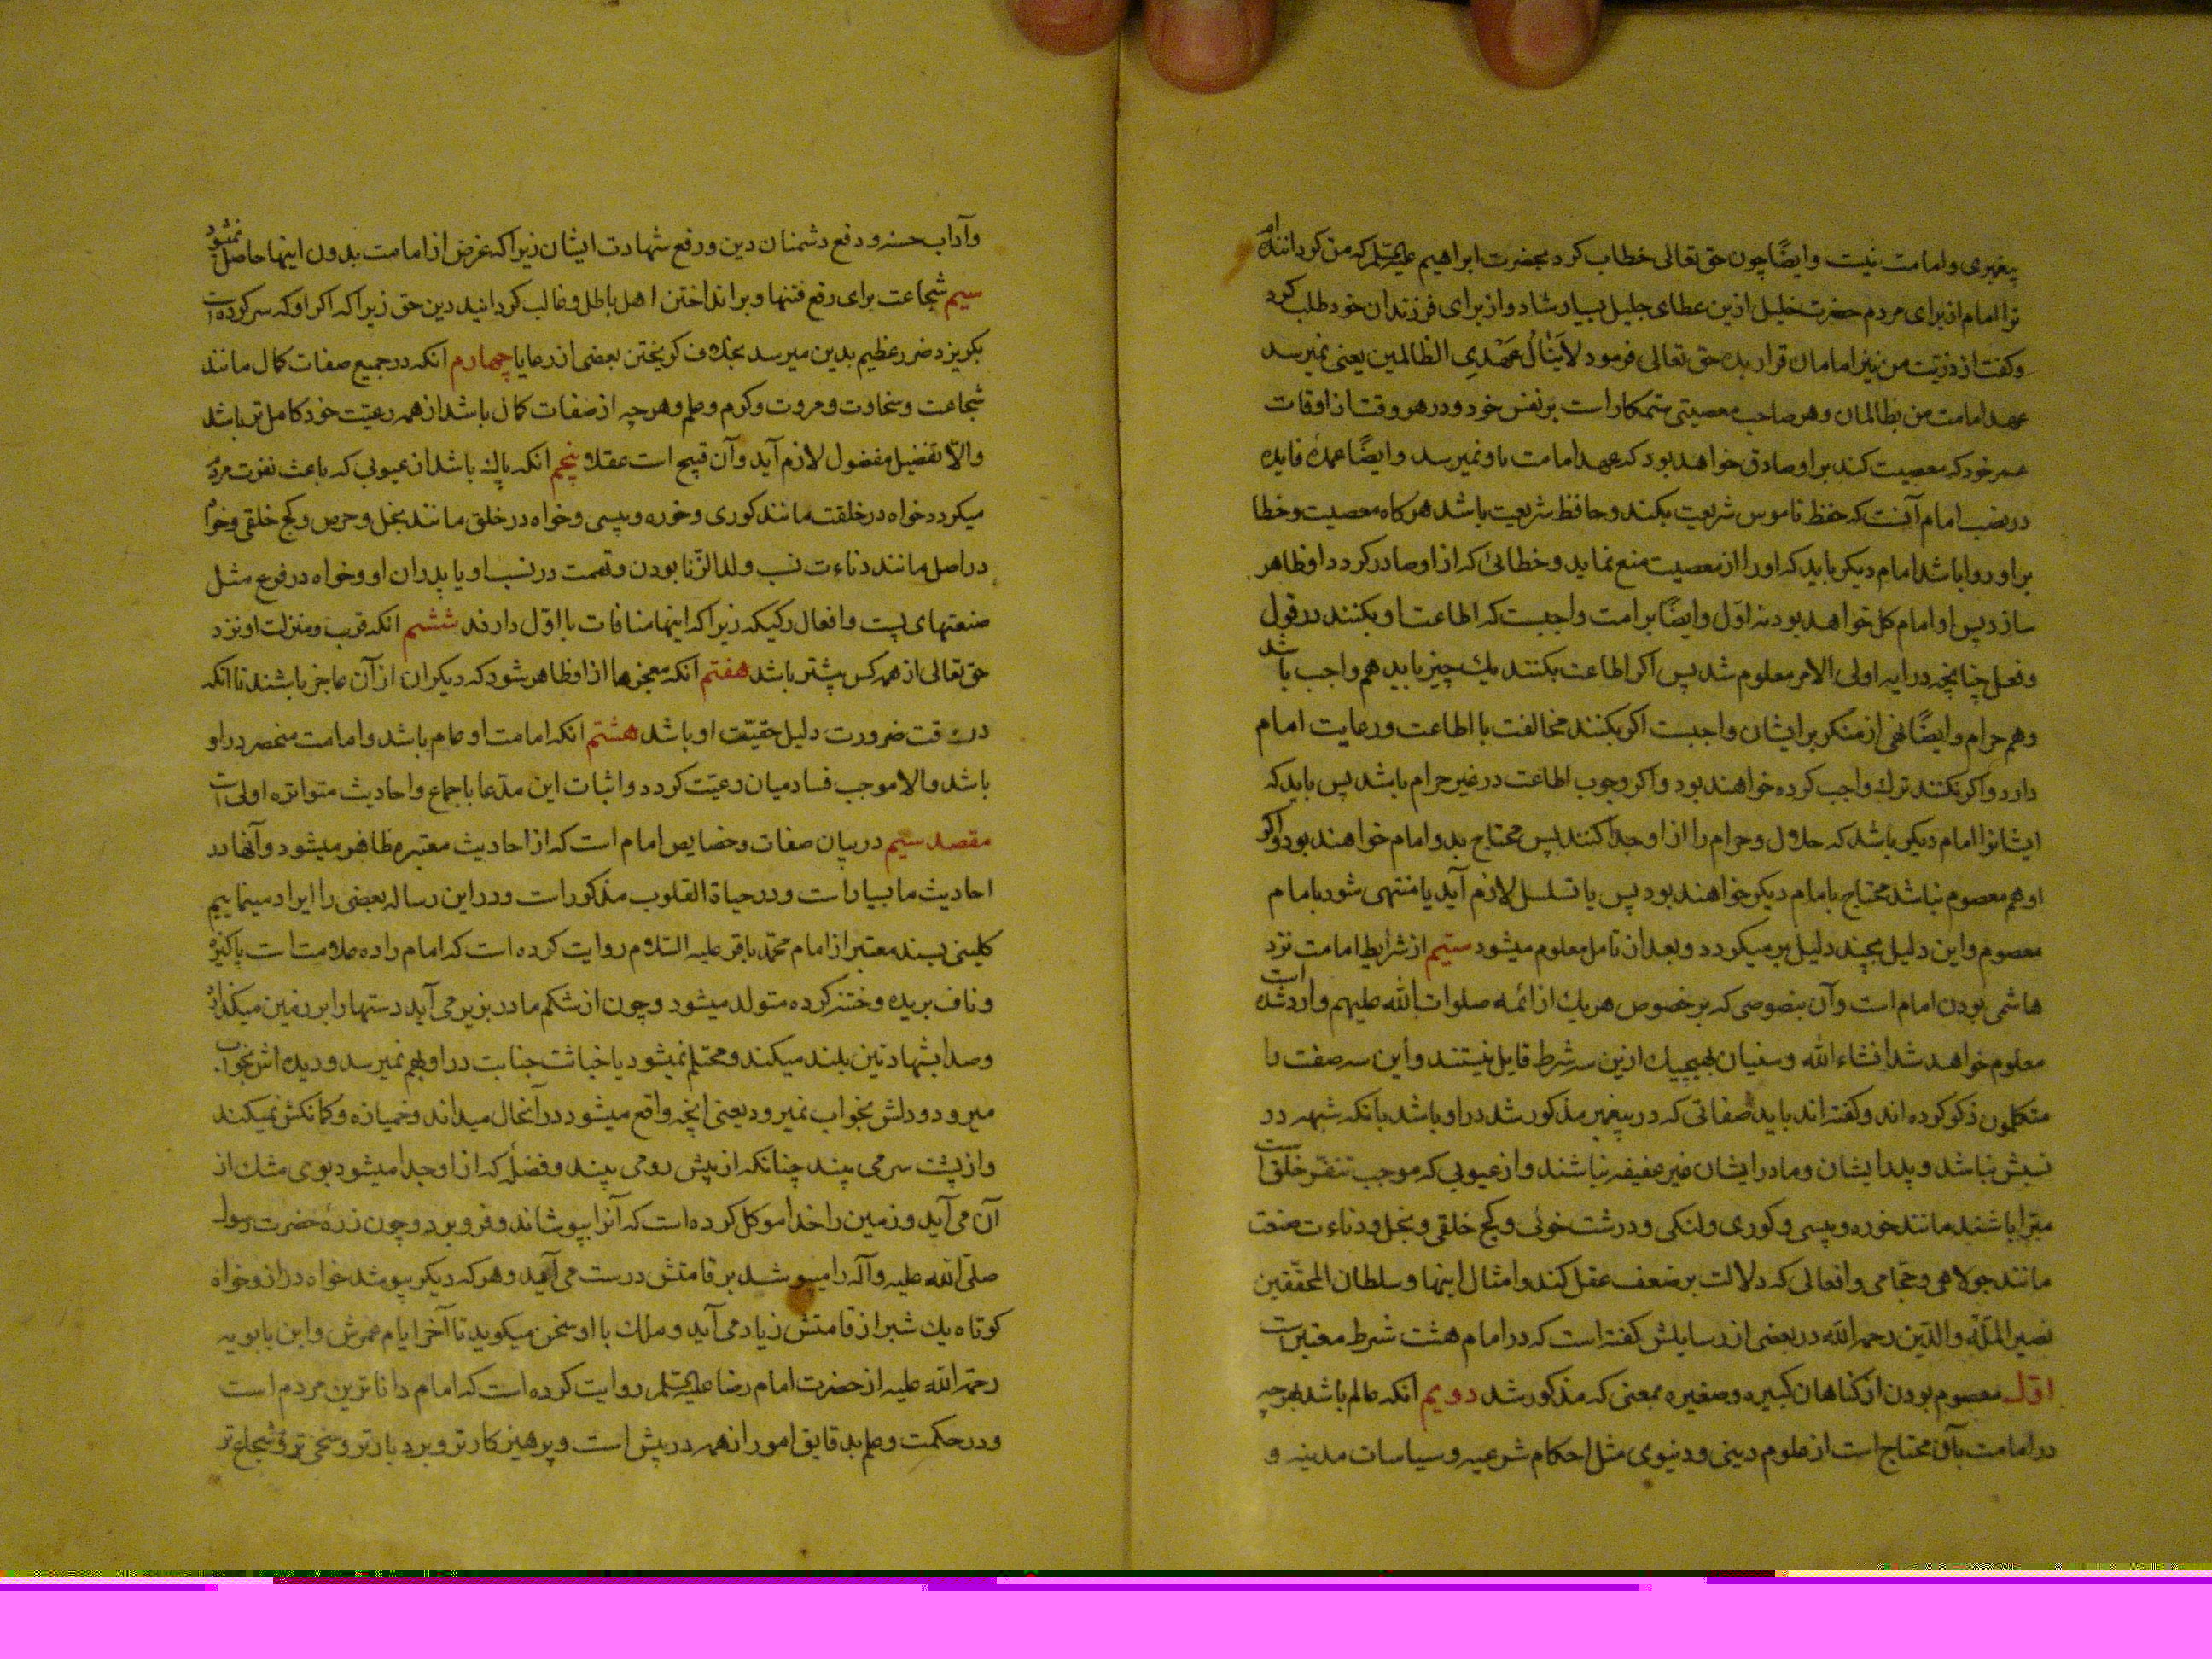 پیغمبری و امامت نیست وایضًا چون حق تعالی خطاب کرد بحضرت ابراهیم علیه‌السلم که من کرداننده‌ام
ترا امام از برای مردم حضرت خلیل ازین عطای جلیل بسیار شاد و از برای فرزندان خود طلب کرد
وکفت از ذرّیّت من نیز امامان قرار بده حق تعالی فرمود لاٰیَنٰالُ عَهْدِی الظالمین یعنی نمیرسد
عهد امامت من بظالمان وهر صاحب معصیتی ستمکار است بر نفس خود و در هر وقت از اوقات
عمر خود که معصیت کند بر او صادق خواهد بود که عهد امامت باو نمیرسد وایضًا عمدهٔ فایده
در نصب امام آنست که حفظ ناموس شریعت بکند و حافظ شریعت باشد هرکاه معصیت وخطا
بر او روا باشد امام دیکر باید که او را از معصیت منع نماید و خطائی که از او صادر کردد او ظاهر
سازد پس او امام کل خواهد بود نه اوّل وایضًا بر امت واجبست که اطاعت او بکنند در قول
وفعل چنانچه در ایه اولی الامر معلوم شد پس اکر اطاعت بکنند یك چیز باید هم واجب باشد
وهم حرام وایضًا نهی از منکر بر ایشان واجبست اکر بکنند مخالفت با اطاعت ورعایت امام
دارد واکر نکنند ترك واجب کرده خواهند بود واکر وجوب اطاعت در غیر حرام باشد پس باید که
ایشانرا امام دیکر باشد که حلال وحرام را از او جدا کنند پس محتاج بدو امام خواهند بود واکر
او هم معصوم نباشد محتاج بامام دیکر خواهند بود پس یا تسلسل لازم آید یا منتهی شود بامام
معصوم واین دلیل بچند دلیل بر میکردد وبعد از تامل معلوم میشود سیّم از شرایط امامت نزد
هاشمی بودن امام است وآن بنصوصی که بر خصوص هر یك از ائمه صلوات الله علیهم وارد شده است
معلوم خواهد شد انشاء الله وسنیان بهیچیك ازین سه شرط قایل نیستند واین سه صفت را
متکلمون ذکر کرده اند وکفته اند باید صفاتی که در پیغمبر مذکور شد در او باشد بانکه شبهه در
نسبش نباشد وپدر ایشان ومادر ایشان غیر عفیفه نباشند واز عیوبی که موجب تنفّر خلق است
مبّرا باشند مانند خوره وپیسی وکوری ولنکی ودرشت خوئی وکج خلقی وبخل ودناءت صنعت
مانند جولاهی وحجّامی وافعالی که دلالت بر ضعف عقل کند وامثال اینها وسلطان المحقّقین
نصیر الملّة والدّین رحمه الله در بعضی از رسایلش کفته است که در امام هشت شرط معتبر است
اوّل معصوم بودن از کناهان کبیره وصغیره بمعنی که مذکور شد دویم انکه عالم باشد بهرچه
در امامت بآن محتاج است از علوم دینی ودنیوی مثل احکام شرعیه وسیاسات مدنیه و
وآداب حسنه ودفع دشمنان دین ورفع شهادت ایشان زیرا که غرض از امامت بدون اینها حاصل نمیشود
سیم شجاعت برای رفع فتنها وبر انداختن اهل باطل وغالب کردانیدن دین حق زیرا که اکر او که سر کرده است
بکریزد ضرر عظیم بدین میرسد بخلاف کریختن بعضی از رعایا چهارم انکه در جمیع صفات کمال مانند
شجاعت وسخاوت ومروت وکرم وعلم وهرچه از صفات کمال باشد از همه رعیّت خود کامل تر باشد
والّا تفضیل مفضول لازم آید وآن قبیح است عقلا پنجم انکه پاك باشد از عیوبی که باعث نفرت مردم
میکردد خواه در خلقت مانند کوری وخوره وپیسی وخواه در خلق مانند بخل وحرص وکج خلقی وخواه
در اصل مانند دناءت نسب وولد الزّنا بودن وتهمت در نسب او یا پدران او وخواه در فرع مثل
صنعتهای پست وافعال رکیکه زیرا که اینها منافات با اوّل دارند ششم انکه قرب ومنزلت او نزد
حق تعالی از همه کس بیشتر باشد هفتم انکه معجزها از او ظاهر شود که دیکران از آن عاجز باشند تا انکه
در وقت ضرورت دلیل حقیّت او باشد هشتم انکه امامت او عام باشد وامامت منحصر در او
باشد والا موجب فساد میان رعیّت کردد واثبات این مدّعا باجماع واحادیث متواتره اولی است
مقصد سیم در بیان صفات وخصایص امام است که از احادیث معتبره ظاهر میشود وآنها در
احادیث ما بسیار است ودر حیاة القلوب مذکور است ودر این رساله بعضی را ایراد مینماییم
کلینی بسند معتبر از امام محمّد باقر علیه السّلام روایت کرده است که امام را ده علامت است پاکیزه
وناف بریده وختنه کرده متولد میشود وچون از شکم مادر بزیر می آید دستها را بر زمین میکذارد
وصدا بشهادتین بلند میکند ومحتلم نمیشود یا خباثت جنابت در او بهم نمیرسد ودیده اش بخواب
میرود ودلش بخواب نمیرود یعنی انچه واقع میشود در آنحال میداند وخمیازه وکمانکش نمیکند
واز پشت سر می بیند چنانکه از پیش رو می بیند وفضلهٔ که از او جدا میشود بوی مشك از
آن می آید وزمین را خدا موکل کرده است که آنرا بپوشاند وفرو برد وچون زره حضرت رسول
صلّی الله علیه وآله را میپوشد بر قامتش درست می آید وهر که دیکر بپوشد خواه دراز وخواه
کوتاه یك شبر از قامتش زیاد می آید وملك با او سخن میکوید تا آخر ایام عمرش وابن بابویه
رحمة الله علیه از حضرت امام رضا علیه‌السلم روایت کرده است که امام داناترین مردم است
ودر حکمت وعلم بدقایق امور از همه در پیش است وپرهیزکارتر وبردبارتر وسخی تر وشجاع تر